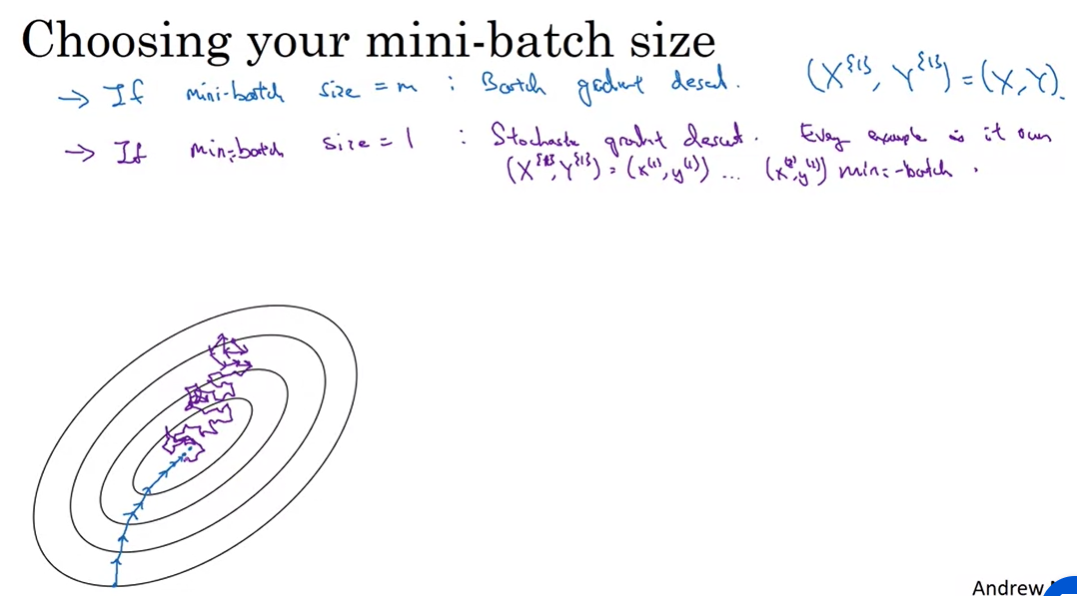 Choosing your mini-batch size
→ If mini-batch size = m : Batch gradient descent. (X^{1}, Y^{1}) = (X, Y).
→ If mini-batch size = 1 : Stochastic gradient descent. Every example is it own
(X^{1}, Y^{1}) = (x^(1), y^(1)) ... (x^(2), y^(2)) mini-batch.
Andrew